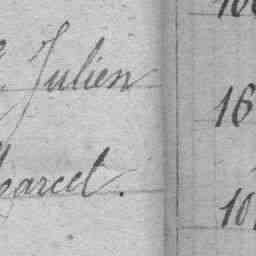 Julien
16
arcel.
10